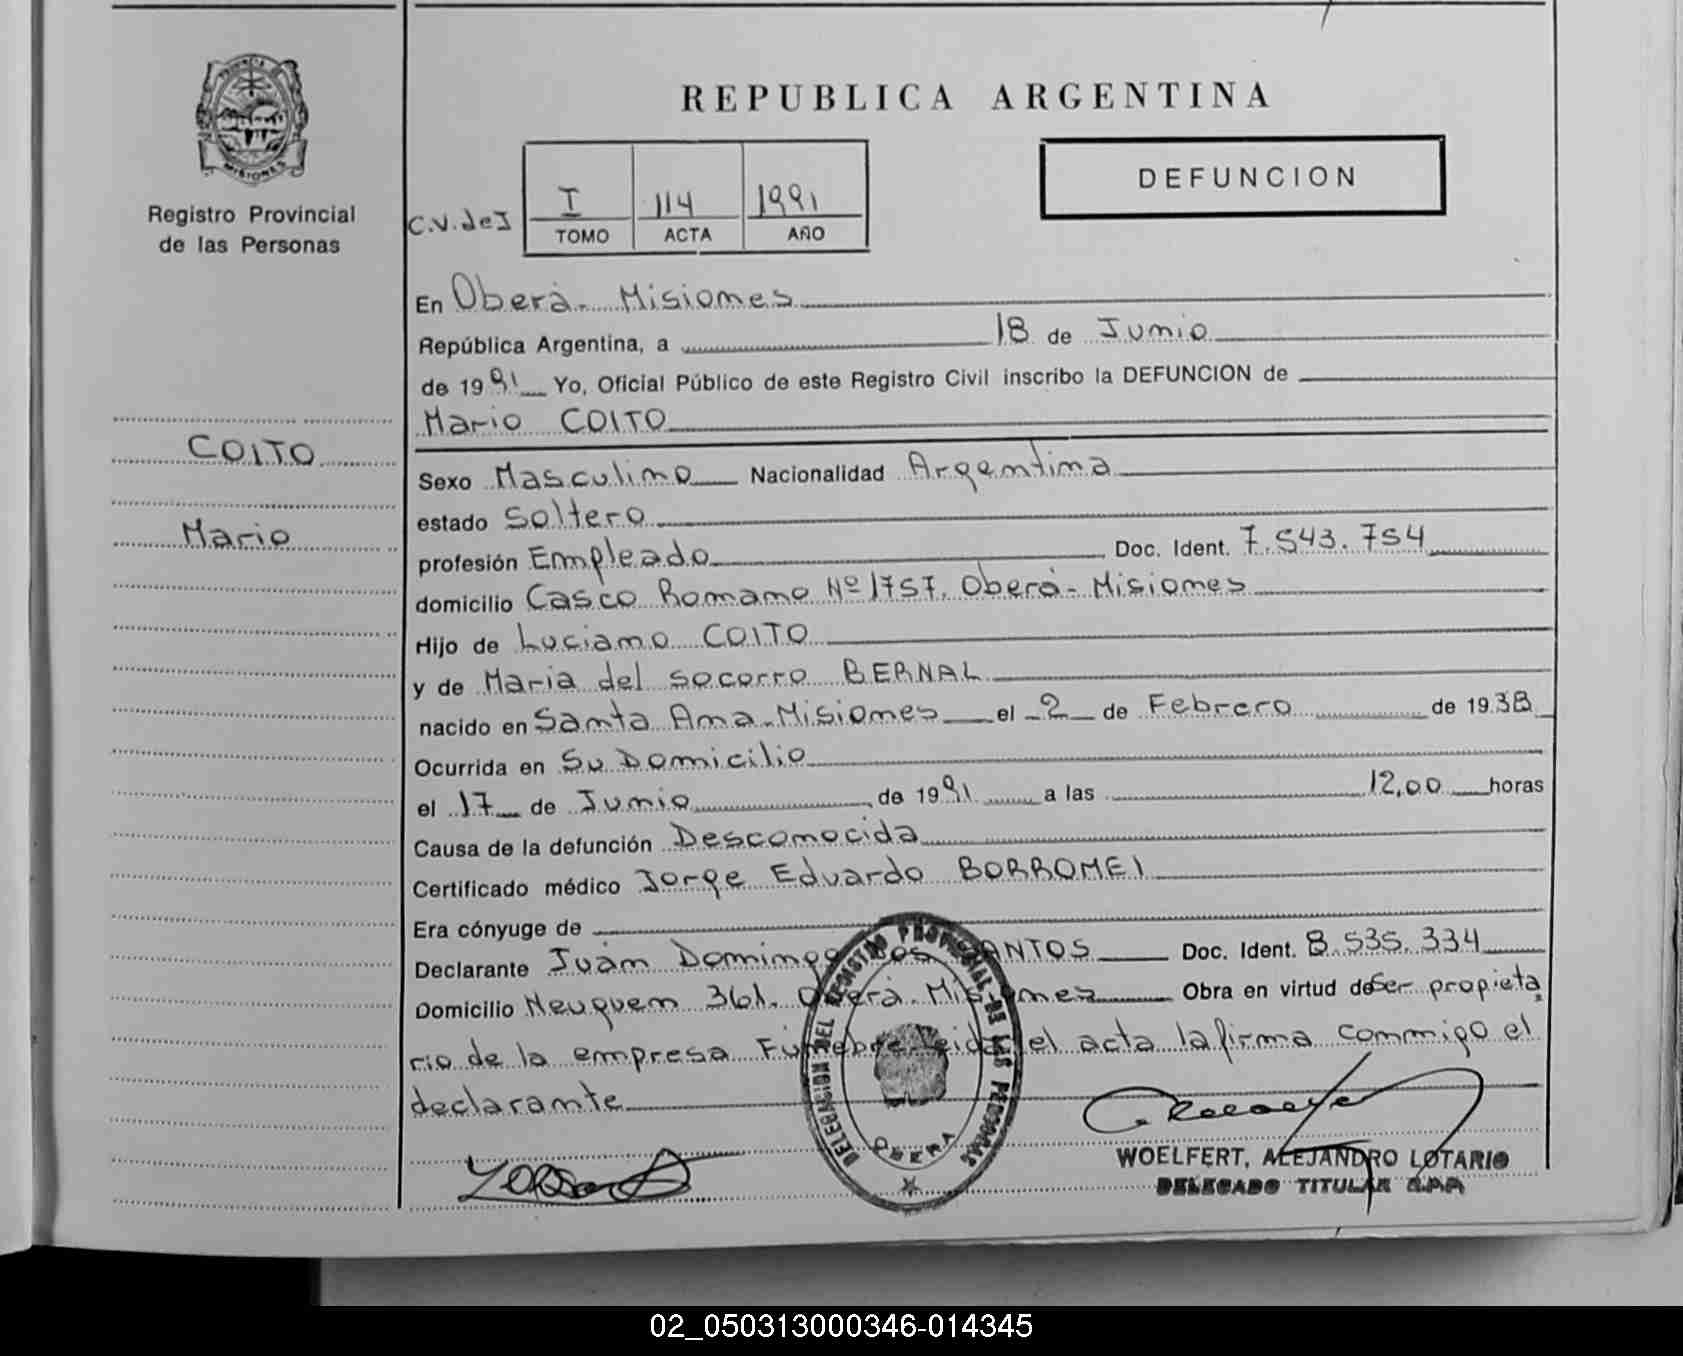 PROVINCIA DE
MISIONES
Registro Provincial
de las Personas
COITO
Mario
REPUBLICA ARGENTINA
DEFUNCION
C.V.deI
I 114 1991
TOMO ACTA AÑO
En Oberá - Misiones
República Argentina, a 18 de Junio
de 1991 Yo, Oficial Público de este Registro Civil inscribo la DEFUNCION de
Mario COITO
Sexo Masculino Nacionalidad Argentina
estado Soltero
profesión Empleado Doc. Ident. 7.543.754
domicilio Casco Romano Nº 1757. Oberá - Misiones
Hijo de Luciano COITO
y de Maria del Socorro BERNAL
nacido en Santa Ana - Misiones el 2 de Febrero de 1938
Ocurrida en Su Domicilio
el 17 de Junio de 1991 a las 12,00 horas
Causa de la defunción Desconocida
Certificado médico Jorge Eduardo BORROMEI
Era cónyuge de
Declarante Juan Domingo Dos SANTOS Doc. Ident. 8.535.334
Domicilio Neuquen 361. Oberá. Misiones Obra en virtud de Ser propieta
rio de la empresa Fúnebre leida el acta la firma conmigo el
declarante
DELEGACION DEL REGISTRO PROVINCIAL DE LAS PERSONAS
OBERA
WOELFERT, ALEJANDRO LOTARIO
DELEGADO TITULAR R.P.P.
02_050313000346-014345